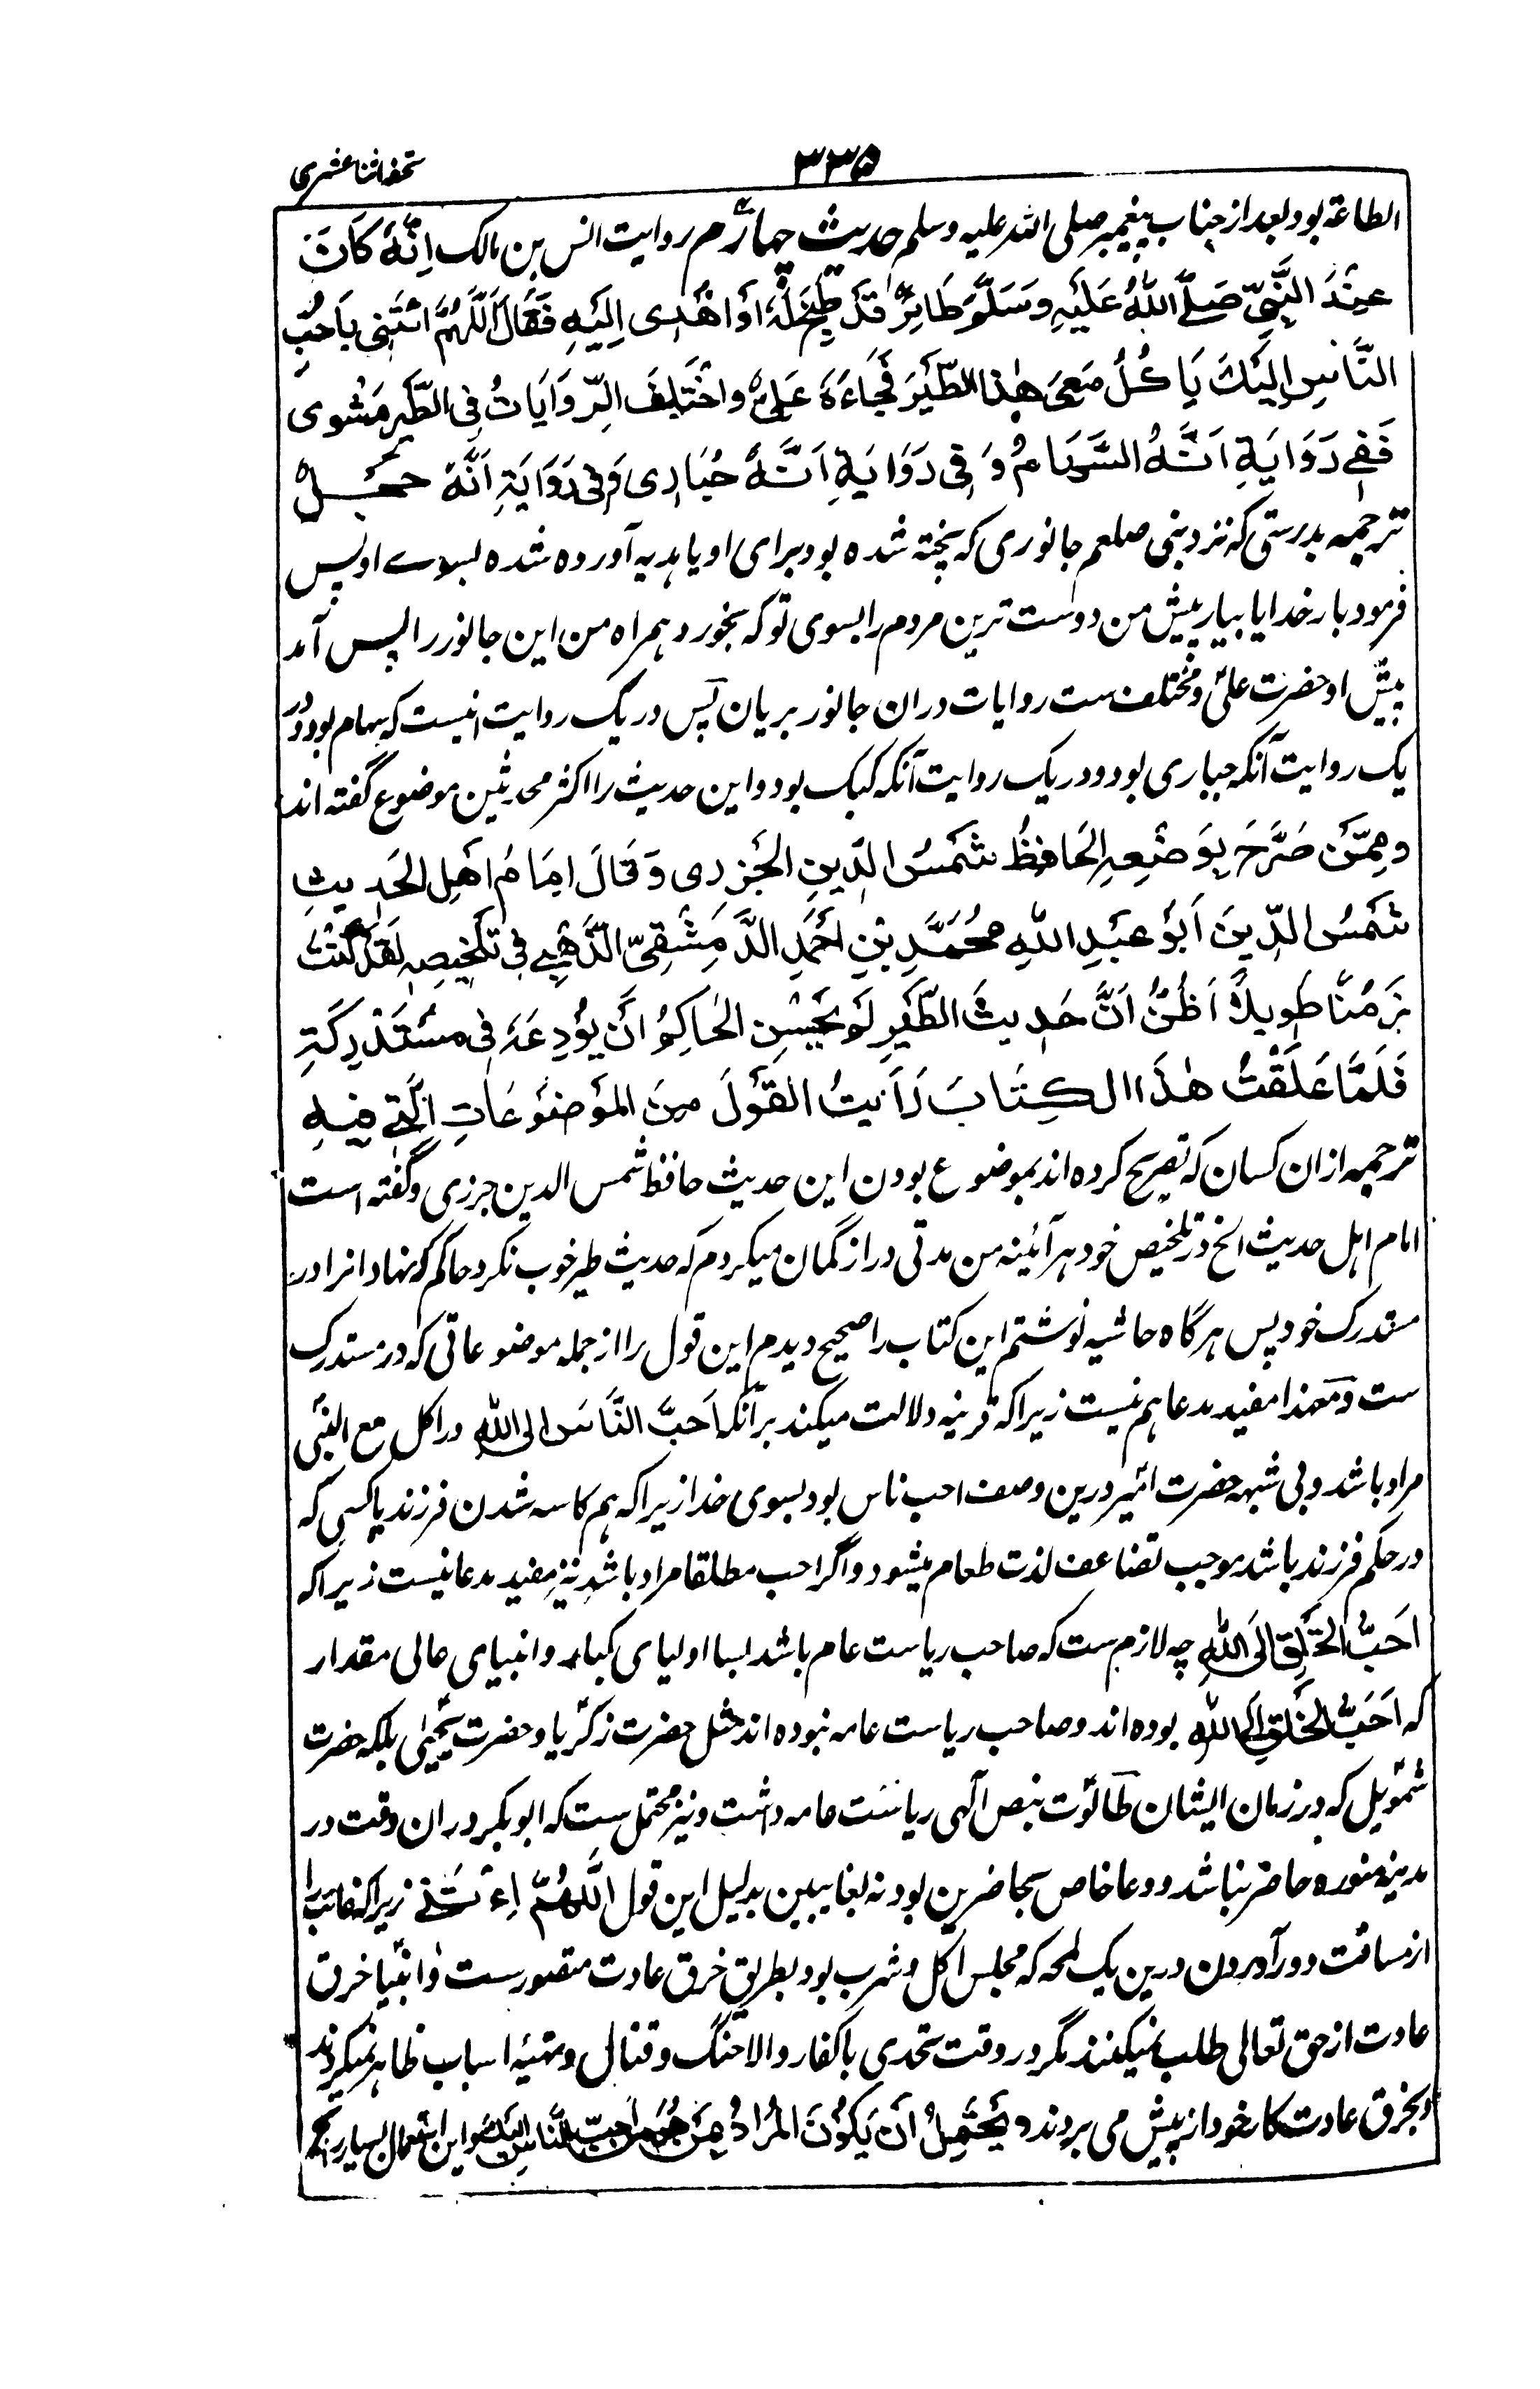 ۳۳۵
تحفه اثنا عشری
الطاعة بود بعد از جناب پیغمبر صلی الله علیه وسلم حدیث چهارم روایت انس بن مالک اِنَّهٗ کَانَ
عِنْدَ النَّبِیِّ صَلَّی اللّٰهُ عَلَیْهِ وَسَلَّمَ طَائِرٌ قَدْ طُبِخَ لَهٗ اَوْ اُهْدِیَ اِلَیْهِ فَقَالَ اَللّٰهُمَّ ائْتِنِی بِاَحَبِّ
النَّاسِ اِلَیْكَ یَاْکُلُ مَعِیَ هٰذَا الطَّیْرَ فَجَاءَهٗ عَلِیٌّ واخْتَلِفَ الرِّوَایَاتُ فِی الطَّیْرِ مَشْوِی
فَفِی رَوَایَةِ اَنَّهُ النَّحَامُ وَ فِی رَوَایَةِ اَنَّهٗ حُبَارِی وَفِی رَوَایَةِ اَنَّهٗ حَجَلٌ
ترجمه بدرستی که نزد نبی صلعم جانوری که پخته شده بود برای او یا هدیه آورده شده بسوے او پس
فرمود بار خدایا بیار پیش من دوست ترین مردم را بسوی تو که بخورد همراه من این جانور را پس آمد
پیش او حضرت علی و مختلف ست روایات در ان جانور بریان پس در یک روایت اینست که نحام بود و در
یک روایت آنکه حباری بود و در یک روایت آنکه کبک بود و این حدیث را اکثر محدثین موضوع گفته اند
وَمِمَّنْ صَرَّحَ بِوَضْعِهِ الْحَافِظُ شَمْسُ الدِّینِ الْجَزَرِی وَقَالَ اِمَامُ اَهْلِ الْحَدِیثِ
شَمْسُ الدِّینَ اَبُوْ عَبْدِ اللّٰهِ مُحَمَّدِ بْنِ اَحْمَدِ الدَّمِشْقِیِّ الذَّهْبِی فِی تَلْخِیصِهٖ لَقَدْ کُنْتُ
زَمَنًا طَوِیلاً اَظُنُّ اَنَّ حَدِیثَ الطَّیْرِ لَمْ یَحْسُنِ الْحَاکِمُ اَنْ یُوْدِعَهٗ فِی مُسْتَدْرِکِهٖ
فَلَمَّا عَلَّقْتُ هٰذَا الْکِتَابَ رَاَیْتُ الْقَوْلَ مِنَ الْمَوْضُوْعَاتِ الَّتِی فِیهِ
ترجمه از ان کسان که تصریح کرده اند بموضوع بودن این حدیث حافظ شمس الدین جزری و گفته است
امام اهل حدیث الخ در تلخیص خود هر آئینه من مدتی دراز گمان میکردم که حدیث طیر خوب نکرد حاکم که نهاد انرا در
مستدرک خود پس هرگاه حاشیه نوشتم این کتاب را صحیح دیدم این قول را از جمله موضوعاتی که در مستدرک
ست ومعهذا مفید مدعا هم نیست زیرا که قرینه دلالت میکند بر آنکه اَحَبَّ النَّاسِ اِلَی اللّٰهِ در اکل مع النبی
مراد باشد و بی شبهه حضرت امیر درین وصف احب ناس بود بسوی خدا زیرا که هم کاسه شدن فرزند یا کسی که
در حکم فرزند باشد موجب تضاعف لذت طعام میشود و اگر احب مطلقا مراد باشد نیز مفید مدعا نیست زیرا که
اَحَبُّ الْخَلْقِ اِلَی اللّٰهِ چه لازم ست که صاحب ریاست عام باشد بسا اولیای کبار و انبیای عالی مقدار
که اَحَبُّ الْخَلْقِ اِلَی اللّٰهِ بوده اند و صاحب ریاست عامه نبوده اند مثل حضرت زکریا و حضرت یحیٰی بلکه حضرت
شمویل که در زمان ایشان طالوت بنص آلهی ریاست عامه داشت و نیز محتمل ست که ابوبکر در ان وقت در
مدینه منوره حاضر نباشد و دعا خاص بحاضرین بود نه بغایبین بدلیل این قول اَللّٰهُمَّ اِءْتِنِی زیرا که غائب را
از مسافت دور آوردن درین یک لمحه که مجلس اکل و شرب بود بطریق خرق عادت متصورست و انبیا خرق
عادت از حق تعالی طلب نمیکنند مگر در وقت تحدی باکفار والا جنگ و قتال و تهیئه اسباب ظاهر نمیکردند
و بخرق عادت کار خود از پیش می بردند و یَحْتَمِلُ اَنْ یَکُوْنَ الْمُرَادُ مِنْ هُوَ مِنْ اَحَبِّ النَّاسِ اِلَیْكَ و این استعمال بسیار رائج